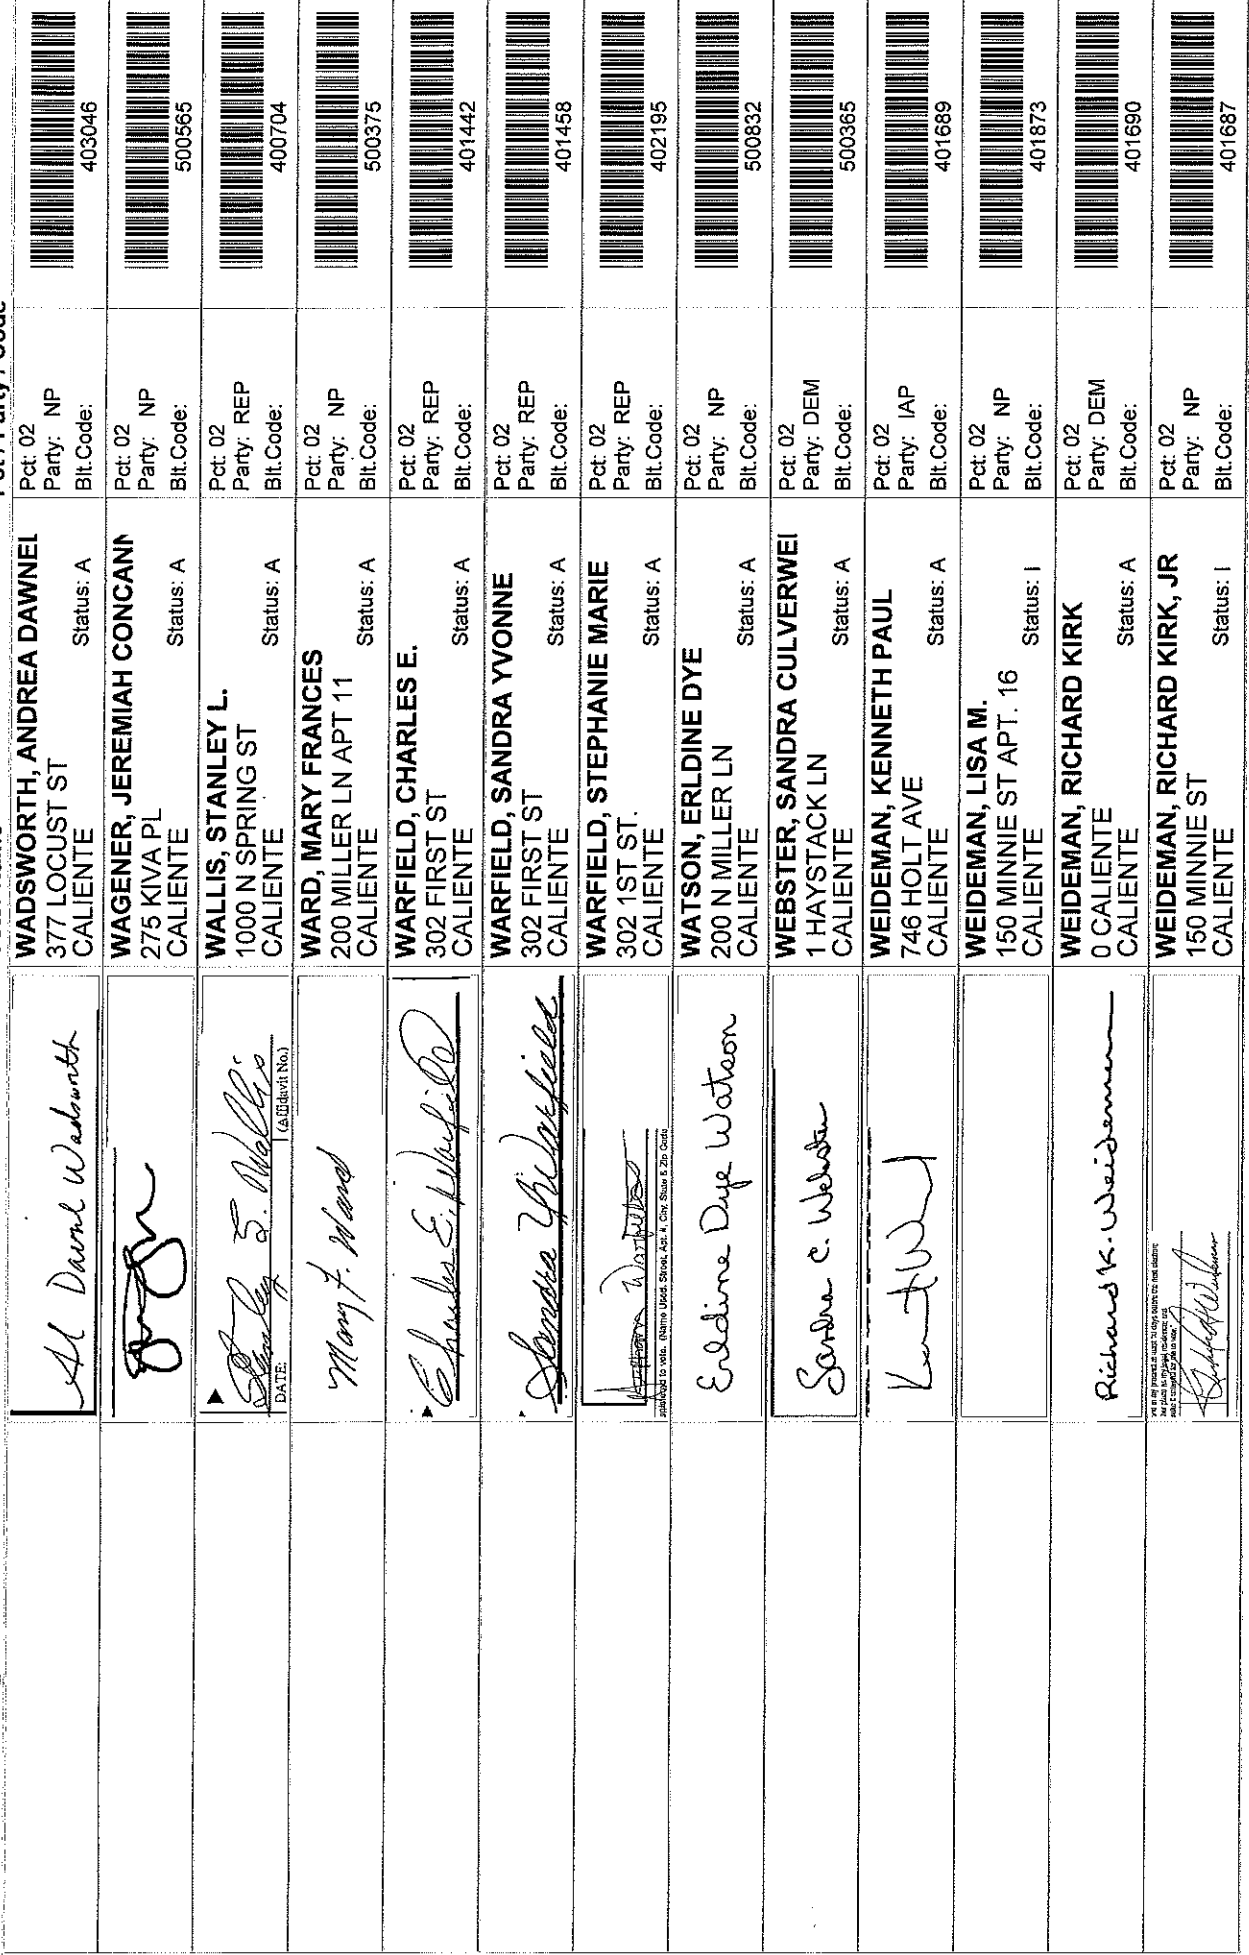 WADSWORTH, ANDREA DAWNEL
377 LOCUST ST
CALIENTE
Status: A
Pct: 02
Party: NP
Blt.Code:
403046
Dawnl Wadsworth
WAGENER, JEREMIAH CONCANN
275 KIVA PL
CALIENTE
Status: A
Pct: 02
Party: NP
Blt.Code:
500565
Stanley L. Wallis
DATE:
(Affidavit No.)
WALLIS, STANLEY L.
1000 N SPRING ST
CALIENTE
Status: A
Pct: 02
Party: REP
Blt.Code:
400704
Mary F. Ward
WARD, MARY FRANCES
200 MILLER LN APT 11
CALIENTE
Status: A
Pct: 02
Party: NP
Blt.Code:
500375
Charles E. Warfield
WARFIELD, CHARLES E.
302 FIRST ST
CALIENTE
Status: A
Pct: 02
Party: REP
Blt.Code:
401442
Sandra Y. Warfield
WARFIELD, SANDRA YVONNE
302 FIRST ST
CALIENTE
Status: A
Pct: 02
Party: REP
Blt.Code:
401458
Warfield
registered to vote. (Name Used, Street, Apt. #, City, State & Zip Code
WARFIELD, STEPHANIE MARIE
302 1ST ST.
CALIENTE
Status: A
Pct: 02
Party: REP
Blt.Code:
402195
Erldine Dye Watson
WATSON, ERLDINE DYE
200 N MILLER LN
CALIENTE
Status: A
Pct: 02
Party: NP
Blt.Code:
500832
Sandra C. Webster
WEBSTER, SANDRA CULVERWEI
1 HAYSTACK LN
CALIENTE
Status: A
Pct: 02
Party: DEM
Blt.Code:
500365
WEIDEMAN, KENNETH PAUL
746 HOLT AVE
CALIENTE
Status: A
Pct: 02
Party: IAP
Blt.Code:
401689
WEIDEMAN, LISA M.
150 MINNIE ST APT. 16
CALIENTE
Status: I
Pct: 02
Party: NP
Blt.Code:
401873
Richard K. Weideman
WEIDEMAN, RICHARD KIRK
0 CALIENTE
CALIENTE
Status: A
Pct: 02
Party: DEM
Blt.Code:
401690
WEIDEMAN, RICHARD KIRK, JR
150 MINNIE ST
CALIENTE
Status: I
Pct: 02
Party: NP
Blt.Code:
401687